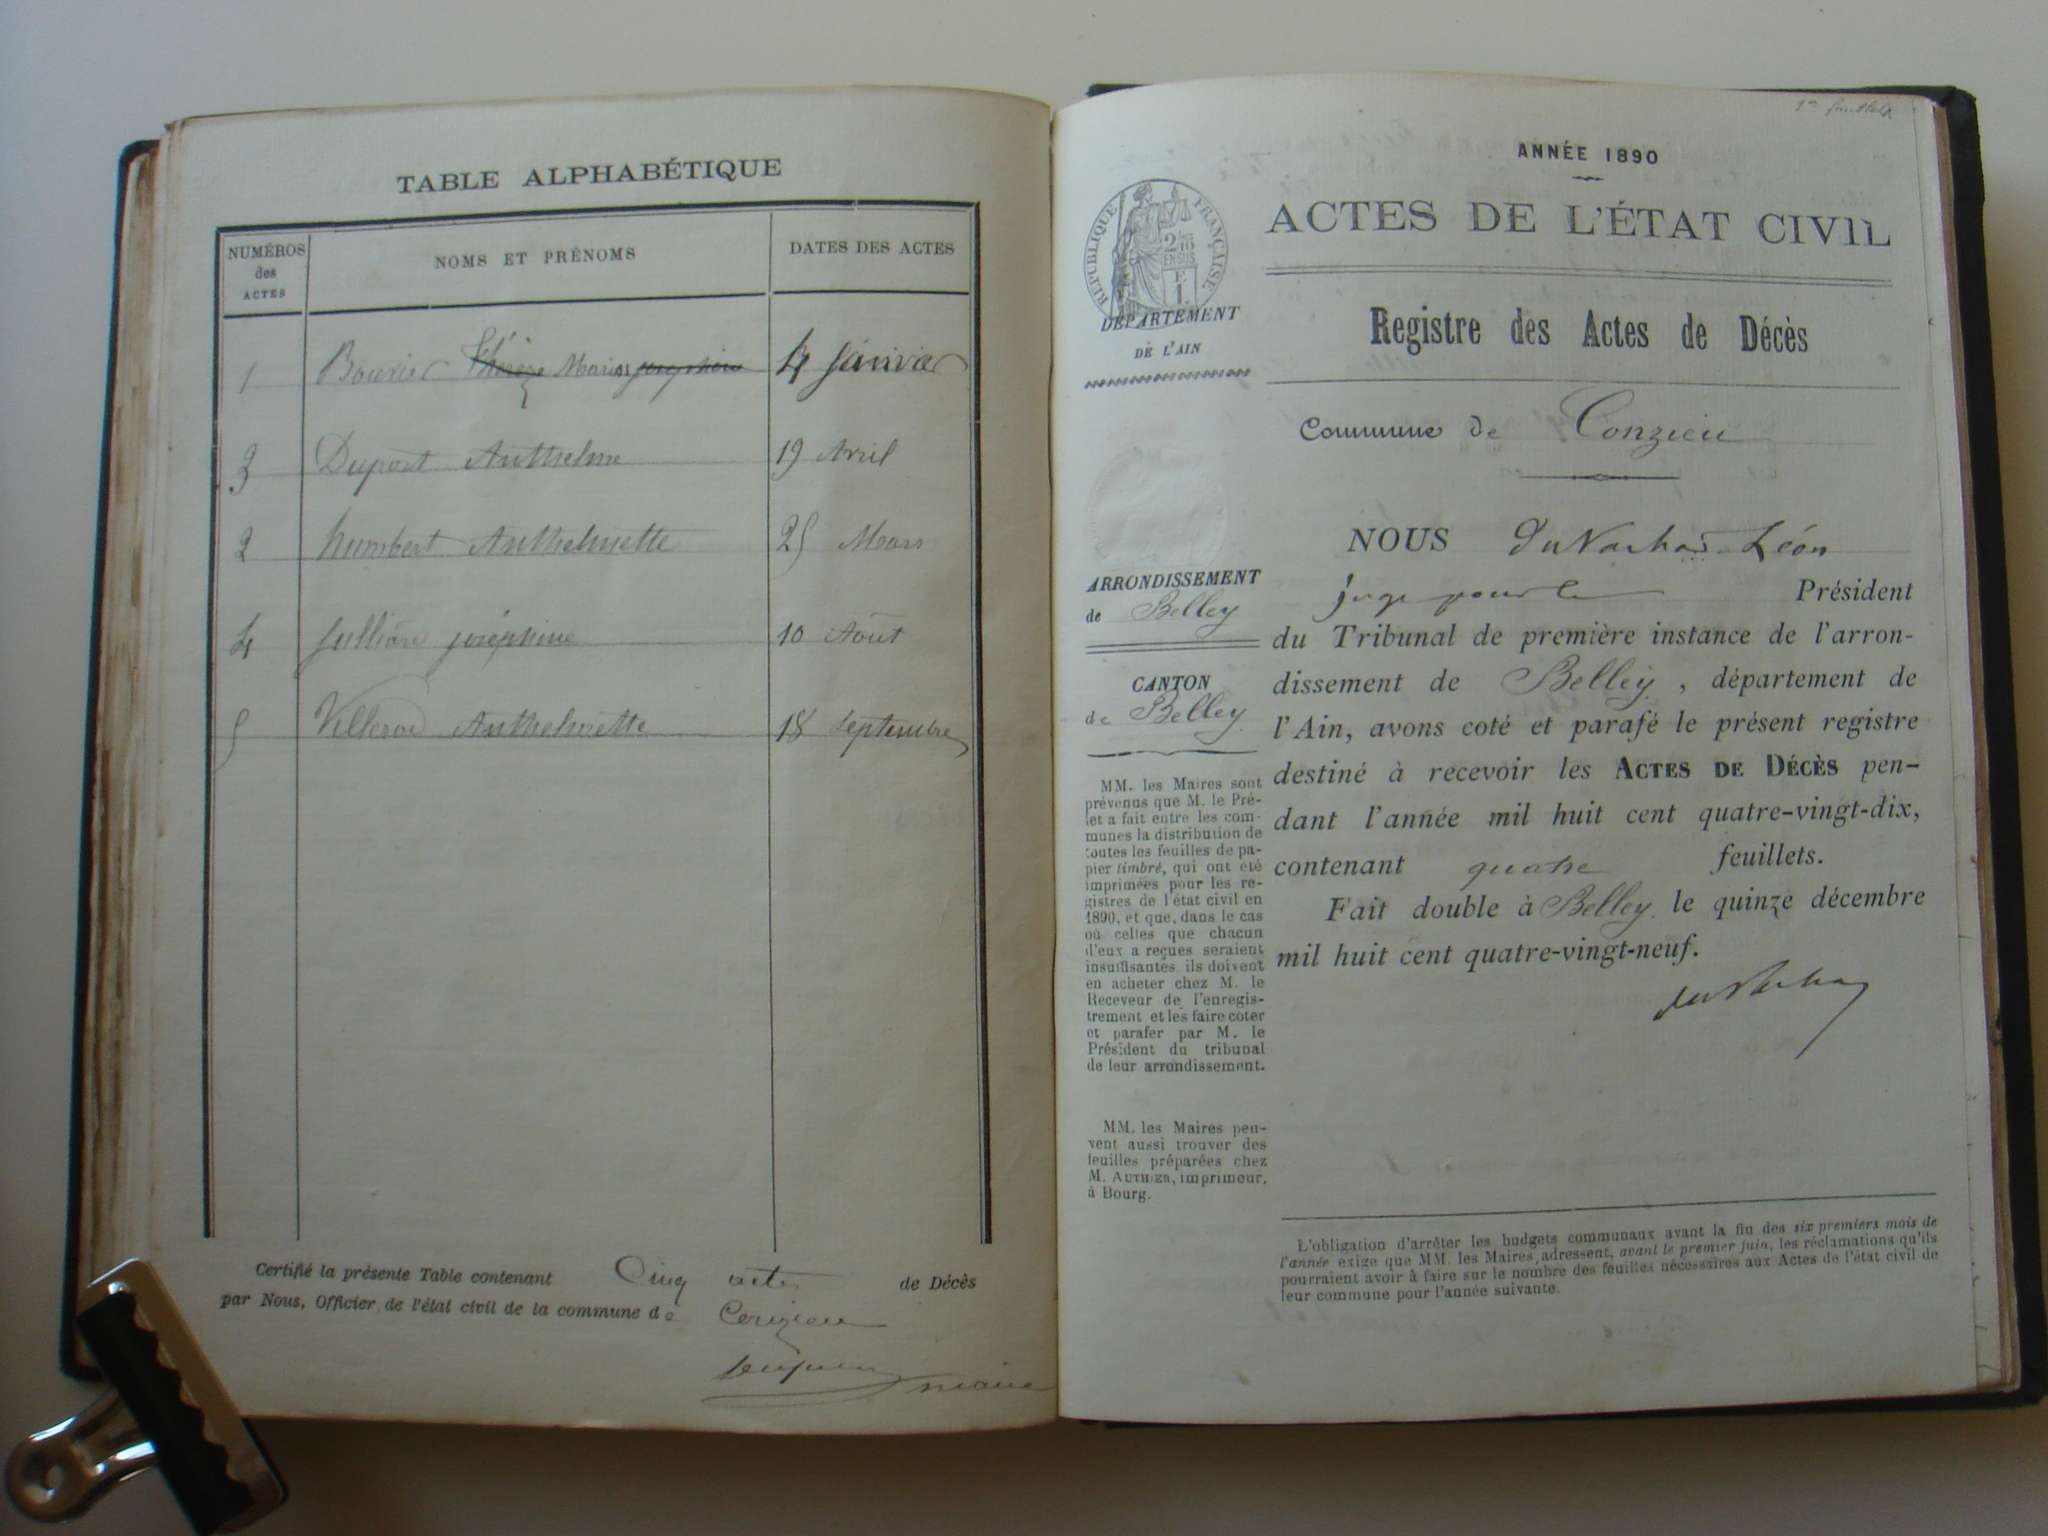 TABLE ALPHABÉTIQUE
NUMÉROS des ACTES
NOMS ET PRÉNOMS
DATES DES ACTES
1 Bouvier Thérèze Marie josephine 4 Janvier
3 Duport Anthelme 19 Avril
2 humbert Anthelmette 25 Mars
4 Julliand joséphine 10 Août
5 Anthelmette 18 Septembre
Certifié la présente Table contenant Cinq actes de Décès
par Nous, Officier de l'état civil de la commune de Conzieu
maire
ANNÉE 1890
ACTES DE L'ÉTAT CIVIL
RÉPUBLIQUE FRANÇAISE
DÉPARTEMENT
DE L'AIN
Registre des Actes de Décès
Commune de Conzieu
ARRONDISSEMENT
de Belley
CANTON
de Belley
MM. les Maires sont
prévenus que M. le Pré-
fet a fait entre les com-
munes la distribution de
toutes les feuilles de pa-
pier timbré, qui ont été
imprimées pour les re-
gistres de l'état civil en
1890, et que, dans le cas
où celles que chacun
d'eux a reçues seraient
insuffisantes ils doivent
en acheter chez M. le
Receveur de l'enregis-
trement et les faire coter
et parafer par M. le
Président du tribunal
de leur arrondissement.
MM. les Maires peu-
vent aussi trouver des
feuilles préparées chez
M. AUTHIER, imprimeur,
à Bourg.
NOUS Léon
juge pour le Président
du Tribunal de première instance de l'arron-
dissement de Belley, département de
l'Ain, avons coté et parafé le présent registre
destiné à recevoir les ACTES DE DÉCÈS pen-
dant l'année mil huit cent quatre-vingt-dix,
contenant quatre feuillets.
Fait double à Belley, le quinze décembre
mil huit cent quatre-vingt-neuf.
L'obligation d'arrêter les budgets communaux avant la fin des six premiers mois de
l'année exige que MM. les Maires adressent, avant le premier juin, les réclamations qu'ils
pourraient avoir à faire sur le nombre des feuilles nécessaires aux Actes de l'état civil de
leur commune pour l'année suivante.